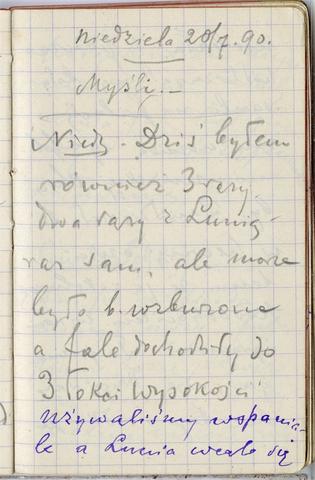 niedziela 20/7.90.
Myśli.—
Niedz. Dziś byłem
również 3 razy.
dwa razy z Lunią
raz sam, ale morze
było b. wzburzone
a fale dochodziły do
3 łokci wysokości
używaliśmy wspania-
le a Lunia wcale się